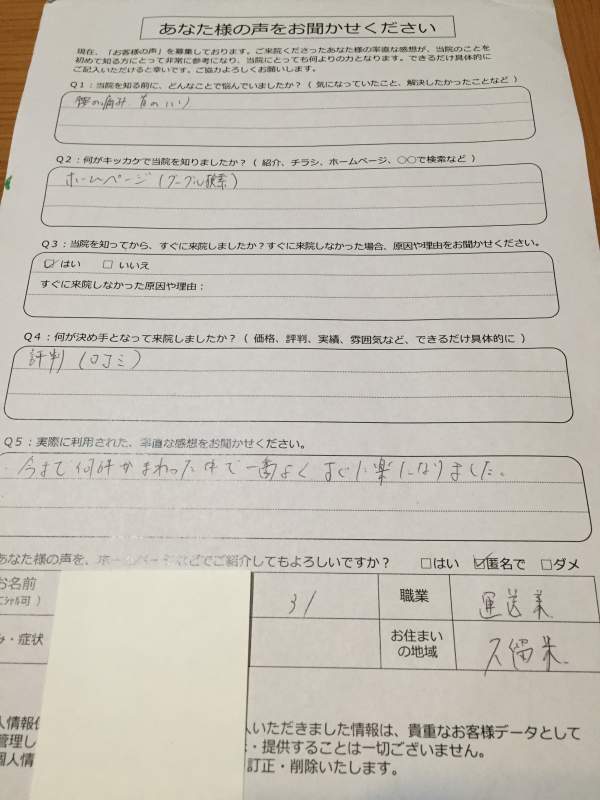 あなた様の声をお聞かせください
現在、「お客様の声」を募集しております。ご来院くださったあなた様の率直な感想が、当院のことを
初めて知る方にとって非常に参考になり、当院にとっても何よりの力となります。できるだけ具体的に
ご記入いただけると幸いです。ご協力よろしくお願いします。
Q1:当院を知る前に、どんなことで悩んでいましたか?( 気になっていたこと、解決したかったことなど )
腰の痛み
Q2:何がキッカケで当院を知りましたか?( 紹介、チラシ、ホームページ、○○で検索など )
ホームページ (グーグル検索)
Q3:当院を知ってから、すぐに来院しましたか?すぐに来院しなかった場合、原因や理由をお聞かせください。
☑ はい □ いいえ
すぐに来院しなかった原因や理由:
Q4:何が決め手となって来院しましたか?( 価格、評判、実績、雰囲気など、できるだけ具体的に )
評判 (口コミ)
Q5:実際に利用された、率直な感想をお聞かせください。
今まで何件かまわった中で一番よくすぐに楽になりました。
あなた様の声を、ホームページなどでご紹介してもよろしいですか? □はい ☑匿名で □ダメ
お名前 31 職業 運送業
ﾆｼｬﾙ可 )
み・症状 お住まい 久留米
の地域
人情報 入いただきました情報は、貴重なお客様データとして
管理し ・提供することは一切ございません。
個人情 訂正・削除いたします。